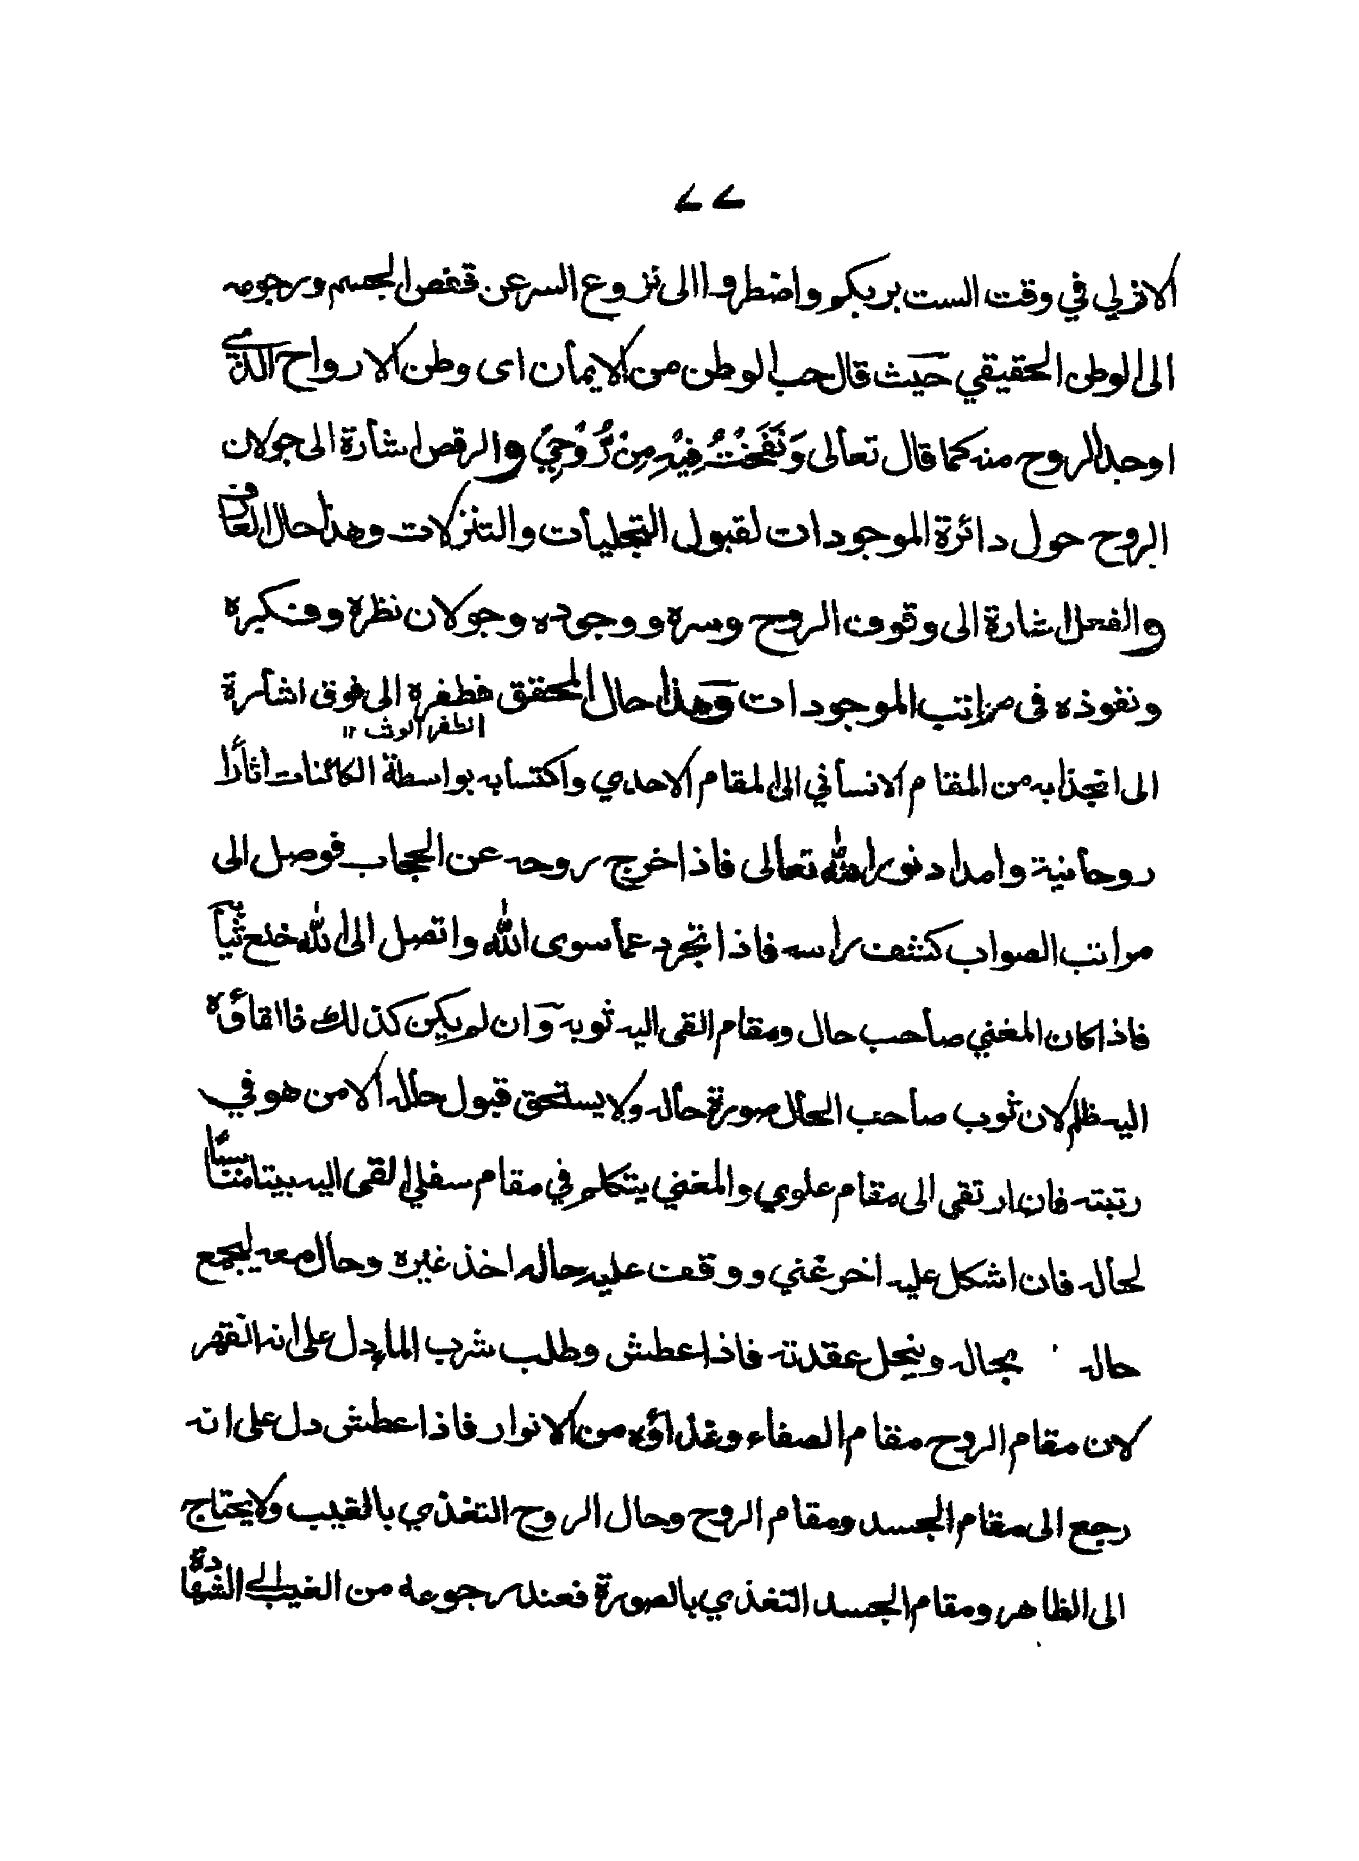 ٢٢
الازلي في وقت الست بربكم واضطروا الى نزوع السر عن قفص الجسم ورجوعه
الى الوطن الحقيقي حيث قال حب الوطن من الايمان اى وطن الارواح الذي
اوجد الروح منه كما قال تعالى وَنَفَخْتُ فِيْهِ مِنْ رُّوْحِيْ والرقص اشارة الى جولان
الروح حول دائرة الموجودات لقبول التجليات والتنزلات وهذا حال العارف
والفعل اشارة الى وقوف الروح وسره ووجوده وجولان نظره وفكيره
ونفوذه فى مراتب الموجودات وهذا حال المحقق فطفره الى فوق اشارة
الطفر الوثب ١٢
الى انجذابه من المقام الانساني الى المقام الاحدي واكتسابه بواسطة الكائنات اثارا
روحانية وامداد نور الله تعالى فاذا خرج روحه عن الحجاب فوصل الى
مراتب الصواب كشف راسه فاذا تجرد عما سوى الله واتصل الى الله خلع ثيابه
فاذا كان المغني صاحب حال ومقام القى اليه ثوبه وان لم يكن كذلك فالقاؤه
اليه ظلم لان ثوب صاحب الحال صورة حاله ولا يستحق قبول حاله الا من هو في
رتبته فان ارتقى الى مقام علوي والمغني يتكلم في مقام سفلي القى اليه بيتا مناسبا
لحاله فان اشكل عليه اخر غني ووقف عليه حاله اخذ غيره وحال معه ليجمع
حاله بحاله وينحل عقدته فاذا عطش وطلب شرب الماء دل على انه انقهر
لان مقام الروح مقام الصفاء وغذاؤه من الانوار فاذا عطش دل على انه
رجع الى مقام الجسد ومقام الروح وحال الروح التغذي بالغيب ولا يحتاج
الى الظاهر ومقام الجسد التغذي بالصورة فعند رجوعه من الغيب الى الشهادة